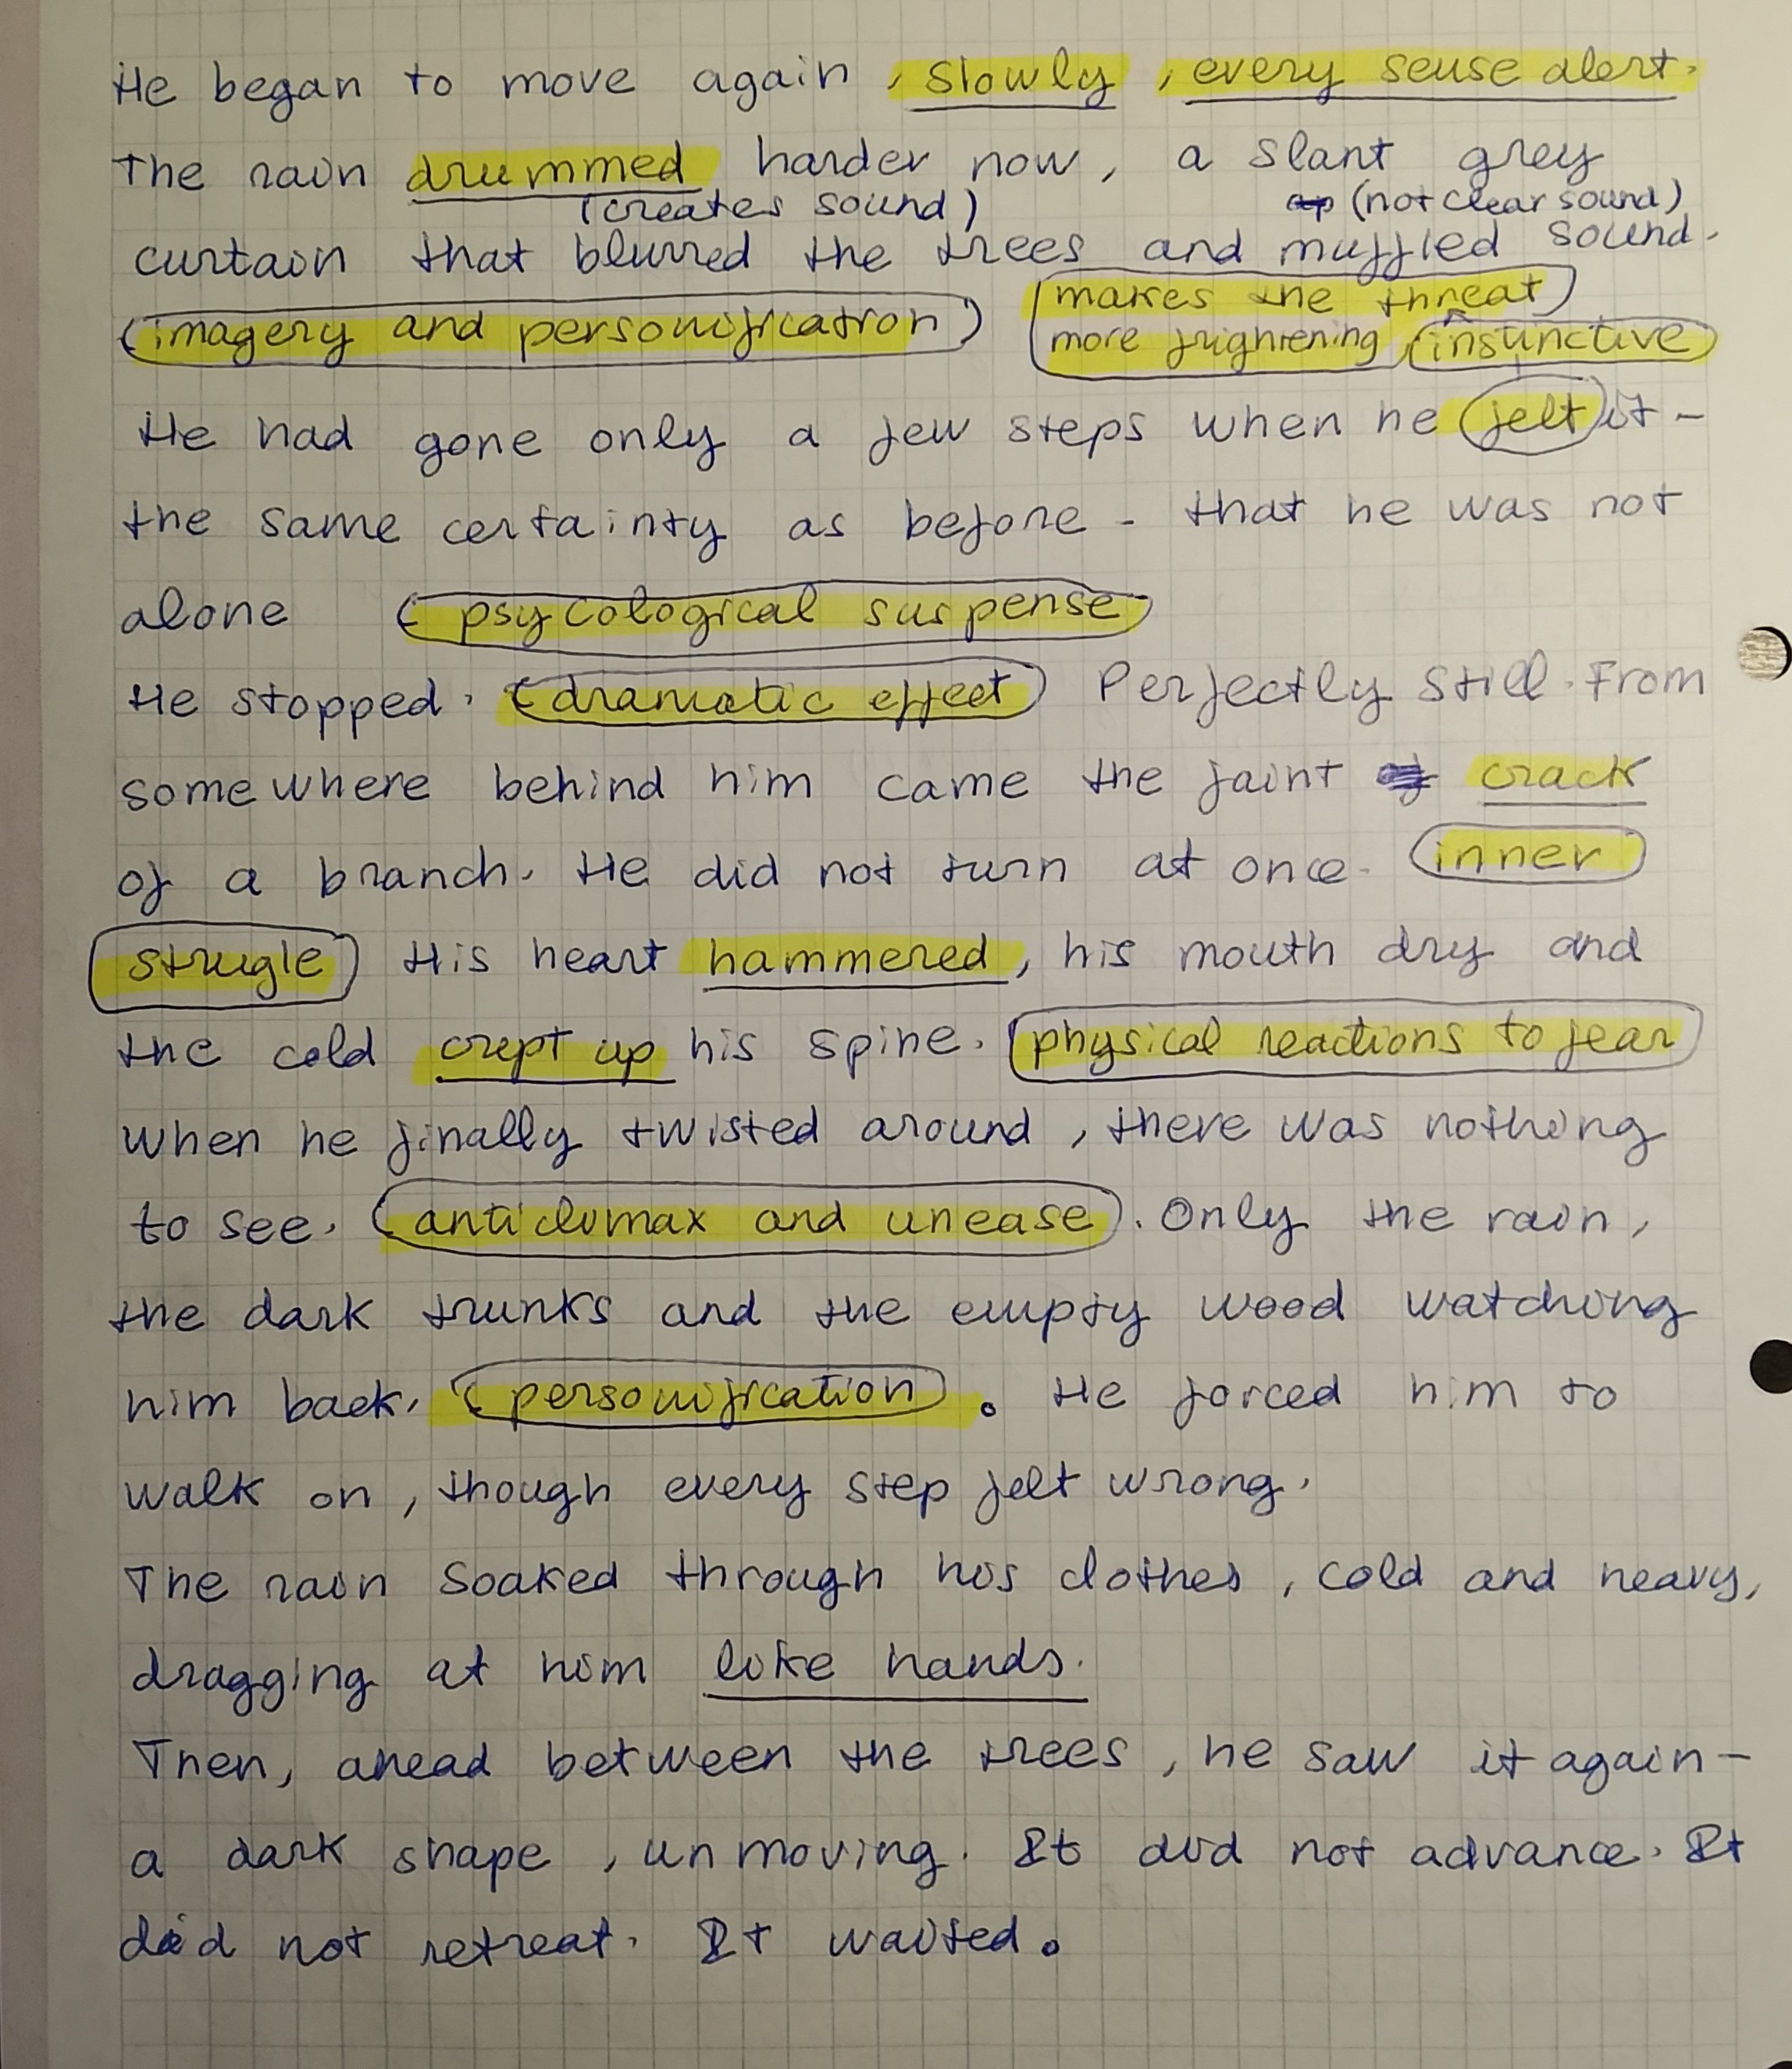 He began to move again, slowly, every sense alert.
The rain drummed harder now, a slant grey
(creates sound) (not clear sound)
curtain that blurred the trees and muffled sound.
(imagery and personification) (makes the threat)
more frightening (instinctive)
He had gone only a few steps when he (felt) it -
the same certainty as before - that he was not
alone (psycological suspense)
He stopped. (dramatic effect) Perfectly still. From
somewhere behind him came the faint crack
of a branch. He did not turn at once. (inner
strugle) His heart hammered, his mouth dry and
the cold crept up his spine. (physical reactions to fear)
When he finally twisted around, there was nothing
to see. (anticlimax and unease). Only the rain,
the dark trunks and the empty wood watching
him back. (personification). He forced him to
walk on, though every step felt wrong.
The rain soaked through his clothes, cold and heavy,
dragging at him like hands.
Then, ahead between the trees, he saw it again -
a dark shape, unmoving. It did not advance. It
did not retreat. It waited.